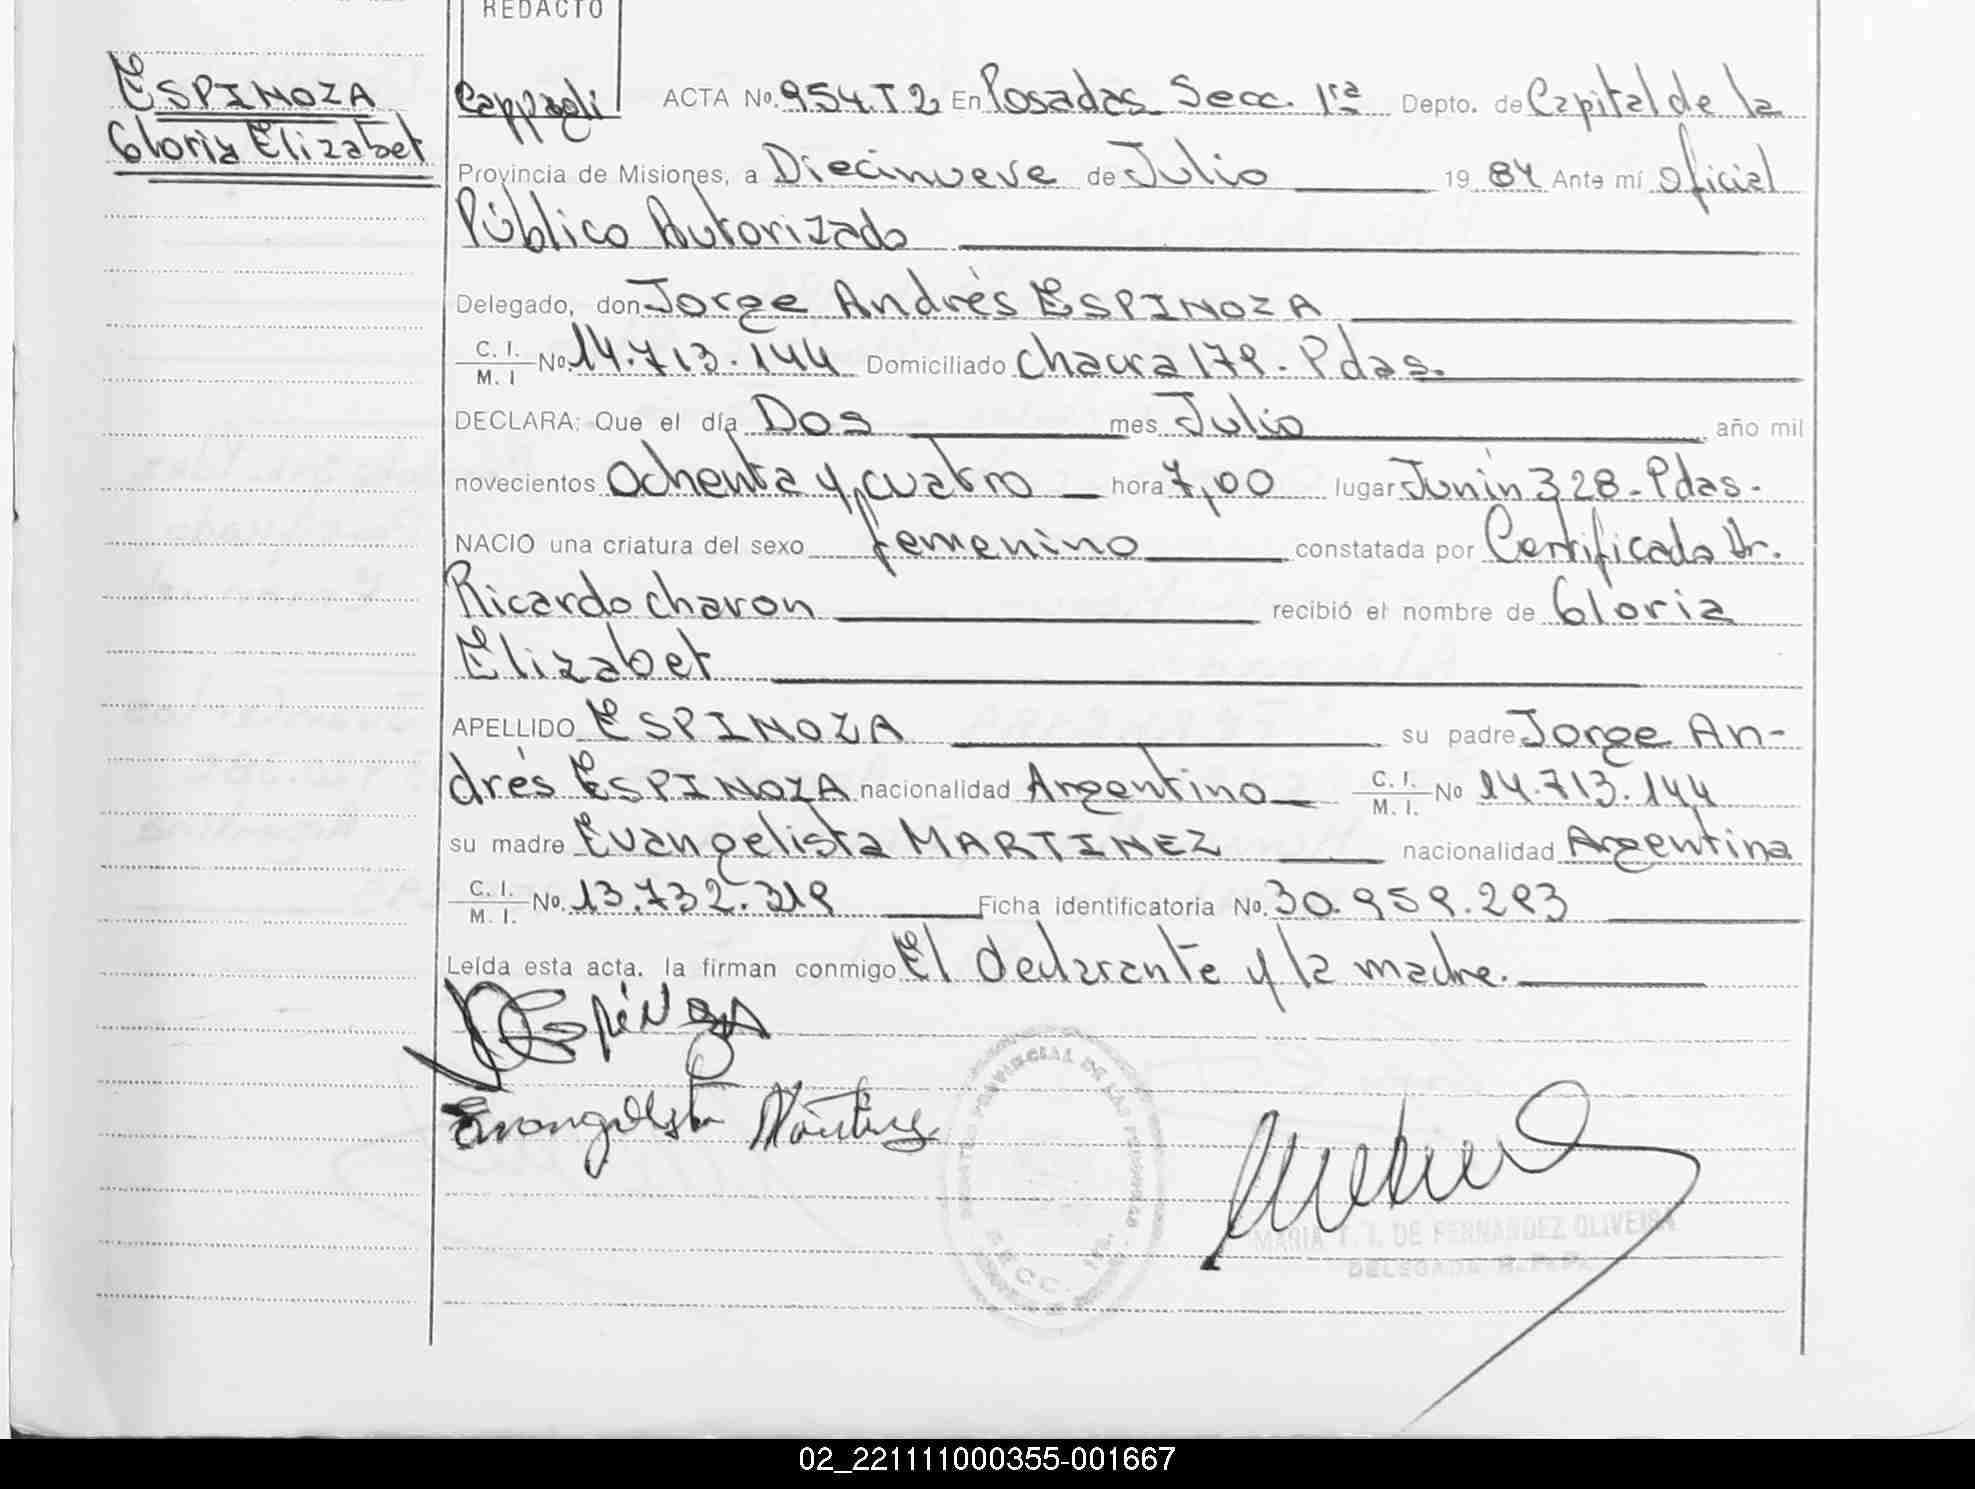 REDACTO
ESPINOZA
Gloria Elizabet
Cappagli ACTA No. 954.T2 En Posadas Secc. 1ra Depto. de Capital de la
Provincia de Misiones, a Diecinueve de Julio 19 84 Ante mí Oficial
Público Autorizado
Delegado, don Jorge Andrés ESPINOZA
C. I. / M. I No. 14.713.144 Domiciliado chacra 179 - Pdas.
DECLARA: Que el día Dos mes Julio año mil
novecientos ochenta y cuatro hora 7,00 lugar Junín 328 - Pdas -
NACIO una criatura del sexo femenino constatada por Certificado Dr.
Ricardo charon recibió el nombre de Gloria
Elizabet
APELLIDO ESPINOZA su padre Jorge An-
drés ESPINOZA nacionalidad Argentino C. I. / M. I. No 14.713.144
su madre Evangelista MARTINEZ nacionalidad Argentina
C. I. / M. I. No. 13.732.319 Ficha identificatoria No. 30.959.293
Leída esta acta, la firman conmigo El declarante y la madre.
Espinoza
Evangelista Martinez
SECC. 1ra.
MARIA T. I. DE FERNANDEZ OLIVEIRA
DELEGADA R.P.P.
02_221111000355-001667